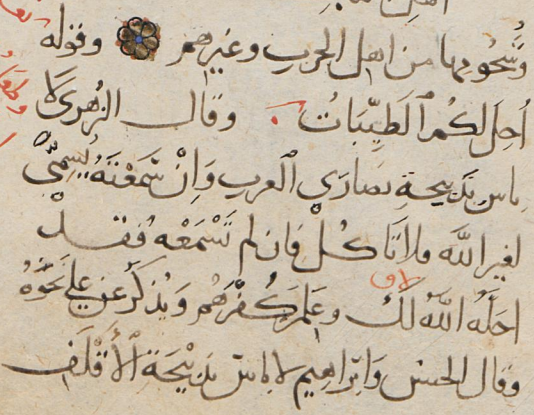 وَشُحُومِهَا من اهل الحرب وغيرهم وقوله
اُحِلَ لكُمُ الطَيِّبَاتُ وقال الزُهرى لا
باس بذبيحةِ نصارَى العرب وَاِنْ سَمعْتَهُ يُسَمِّى
لغير اللهِ فلا تَاكُلْ فان لم تَسْمَعْه فقدْ
احلّهُ اللهُ لكَ وعَلِمَ كُفْرَهُم وَيُذكَرُ عن علي نحوُهُ
وقال الحسن وَابْراهيم لا باس بذبيحَة الأَقْلَف